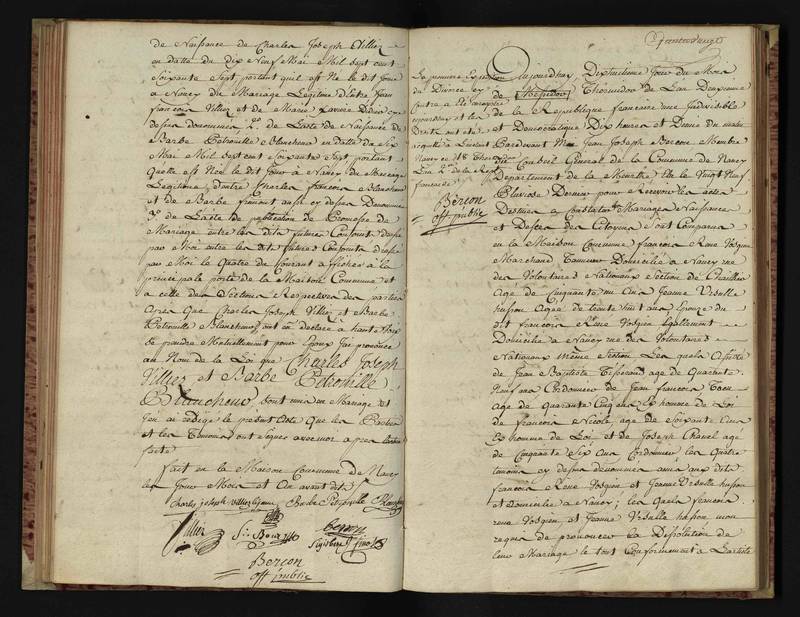 de Naissance de Charles Joseph Villiez
en datte du Dix Neuf Mai Mil Sept cent
Soixante Sept, portant quil est Né le dit Jour
à Nancy du Mariage Legitime d'entre Jean
francois Villiez et de Marie
desus denommés 2.o de L'acte de Naissance de
Barbe Petronille Blancheur en datte du Six
Mai Mil Sept cent Soixante Sept, portant
quelle est Née le dit Jour à Nancy du Mariage
Legitime d'entre Charles francois Blancheur
et de Barbe froment aussi cy desus Denommé
3.o de L'acte de publication de Promesse de
Mariage entre les dits futurs Conjoints dressé
par Moi entre les dits futurs Conjoints dressé
par Moi le Quatre du Courant affichés à la
principale porte de la Maison Commune et
a celle des Sections Respectives des parties
Apres Que Charles Joseph Villiez et Barbe
Petronille Blancheur ont eu déclaré a haute Voix
se prendre Mutuellement pour Epoux J'ai prononcé
au Nom de la Loi que Charles Joseph
Villiez et Barbe Petronille
Blancheur sont unis en Mariage et
J'en ai rédigé le présent Acte Que les Parties
et les Temoins ont Signés avec moi apres lecture
faite
fait en la Maison Commune de Nancy
les Jour Mois et An avant dits
Charles joseph villiez Barbe Petronille Blancheur
Villiez
Bercon
off. public
La premiere Expedition
du Divorce cy
contre a été
Nancy ce
Lan 2.e de la Rep.
française
Bercon
off. public
Aujourdhuy, Dixhuitieme Jour du Mois
de Messidor Thermidor de L'an Deuxieme
de la Republique francaise une Indivisible
et Democratique Dix heures et Demie du matin
Pardevant Moi Jean Joseph Bercon Membre
du Conseil General de la Commune de Nancy
Departement de la Meurthe Elu le Vingt Neuf
Pluviose Dernier pour Recevoir les actes
Destinés a Constater les Mariages Naissances
et Deces des Citoyens Sont Comparus
en la Maison Commune francois Rene Vosgien
Marchand Domicilié a Nancy rue
des Volontaires Nationaux Section de
Agé de Cinquante un Ans Jeanne Ursulle
husson Agée de trente huit ans Epouse du
dit francois Rene Vosgien Egallement
Domicilié a Nancy rue des Volontaires
Nationaux Même Section Lesquels Assistés
de Jean Baptiste Tisserand age de Quarante
Neuf ans Cordonnier de Jean francois
Age de quarante Cinq ans Ex homme de Loi
de francois Nicolas age de Soixante Ans
Ex homme de Loi et de Joseph Chanel agé
de Cinquante Six Ans Cordonnier les Quatre
temoins cy desus denommés amis aux dits
francois Rene Vosgien et Jeanne Ursulle husson
et Domiciliés a Nancy; les quels francois
rene Vosgien et Jeanne Ursulle husson mon
requis de prononcer la Dissolution de
leur Mariage le tout Conformement a L'article